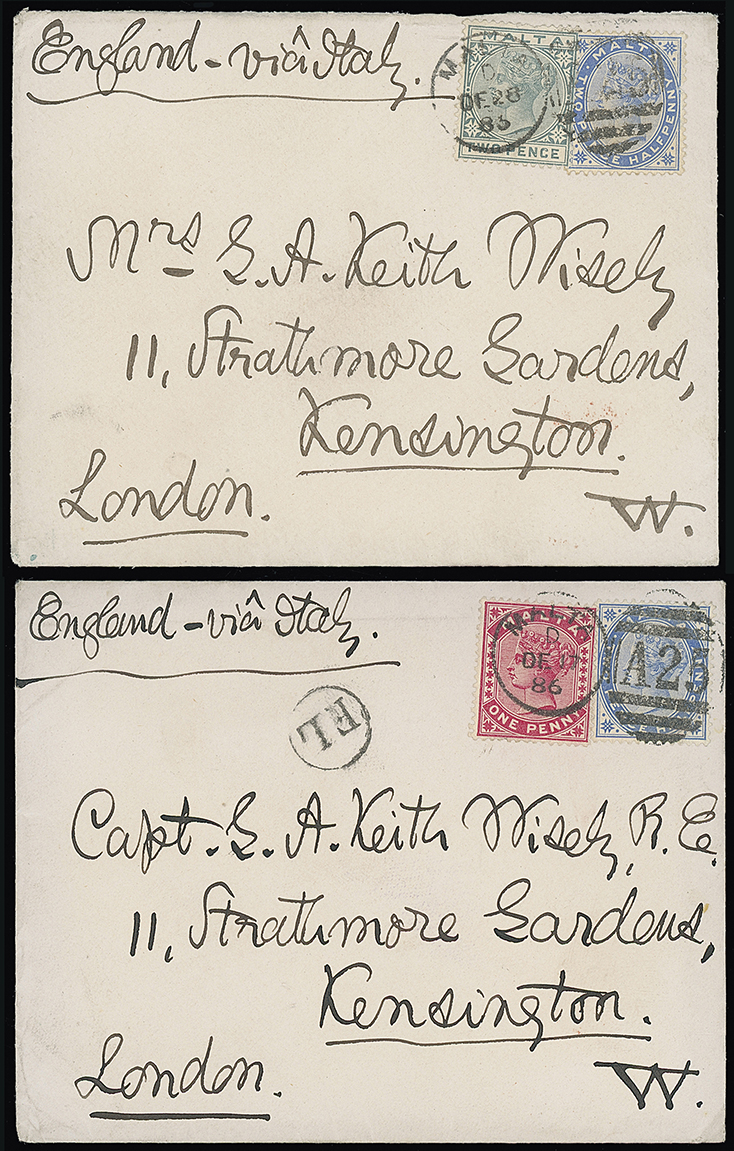 England - viâ Italy.
MALTA
D
DE 28
86
TWO PENCE
MALTA
TWO PENNY
HALFPENNY
Mrs G. A. Keith Wisely
11, Strathmore Gardens,
Kensington.
London. W.
England - viâ Italy.
MALTA
D
DE 17
86
ONE PENNY
A25
L
Capt. G. A. Keith Wisely, R. E.
11, Strathmore Gardens,
Kensington.
London. W.